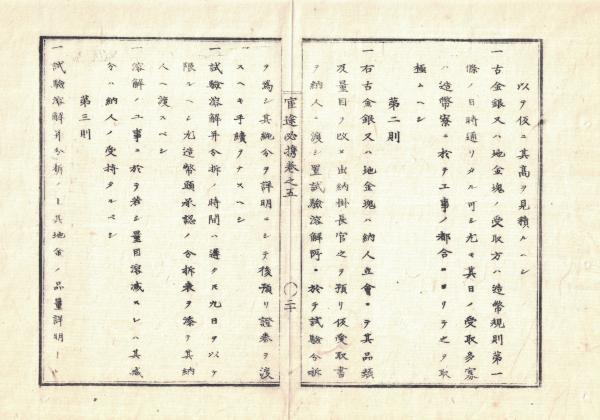 以テ仮ニ其高ヲ見積ルヘシ
一古金銀又ハ地金塊ノ受取方ハ造幣規則第一
條ノ日時通リタル可シ尤モ其日ノ受取多寡
ハ造幣寮ニ於テ工事ノ都合ニヨリテ之ヲ取
極ムヘシ
第二則
一右古金銀又ハ地金塊ハ納人立會ニテ其品類
及量目ヲ改メ出納掛長官之ヲ預リ仮受取書
ヲ納人ニ渡シ置試驗溶解所ニ於テ試驗分析
官途必携巻之五
〇二十
ヲ為シ其純分ヲ詳明ニシテ後預リ證券ヲ渡
スヘキ手續ヲナスヘシ
一試驗溶解并分析ノ時間ハ遅クモ九日ヲ以テ
限ルヘシ尤造幣頭承認ノ分析表ヲ添テ其納
人ヘ渡スベシ
一溶解ノ工事ニ於テ若シ量目溶減スレハ其減
分ハ納人ノ受持タルベシ
第三則
一試驗溶解并分析ノ上其地金ノ品量詳明シ